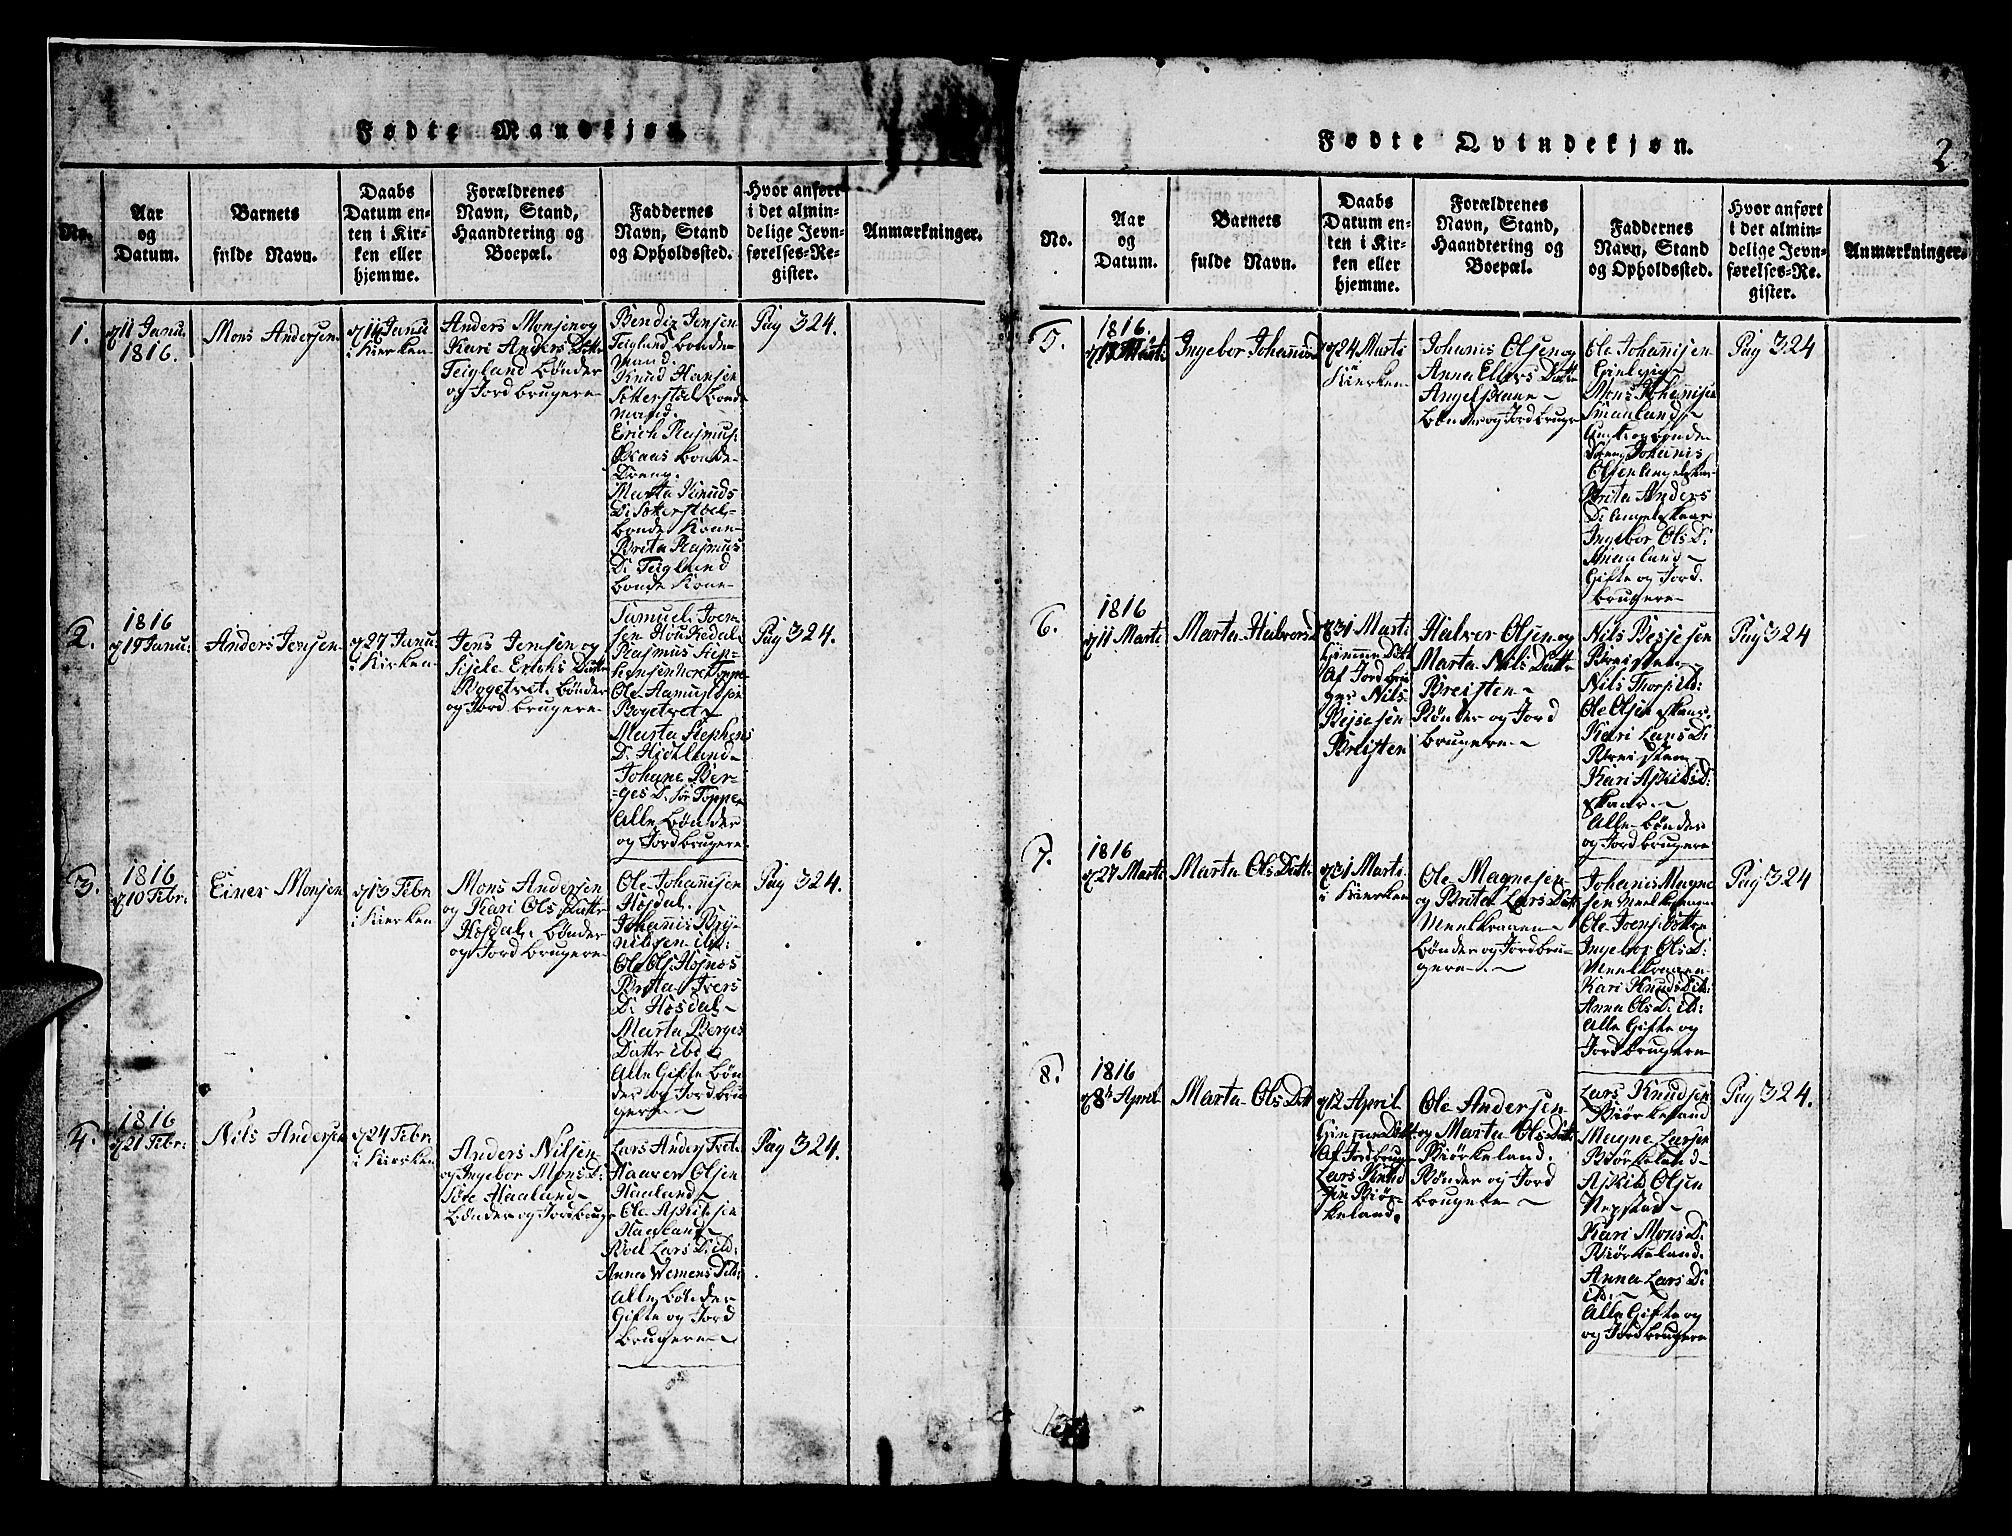 Fødte Mandkjøn.
No.
Aar
og
Datum.
Barnets
fulde Navn.
Daabs
Datum en-
ten i Kir-
ken eller
hjemme.
Forældrenes
Navn, Stand,
Haandtering og
Boepæl.
Faddernes
Navn, Stand
og Opholdssted.
Hvor anført
i det almin-
delige Jevn-
førelses-Re-
gister.
Anmærkninger.
1.
11 Janu.
1816.
Mons Andersen
16 Janu
i Kierken
Anders Monsen og
Kari Anders Dattr
Teigland bønder
og Jord brugere
Bendix Jensen
Teigland bonde-
mand.
Knud Hansen
bonde
mand.
Erich Rasmus:
Skaas bonde
Dreng.
Marta Knuds
D:
bonde Kone
Brita Rasmus
D: Teigland
bonde Kone
Pag 324.
2.
1816
19 Janu:
Anders Jensen
27 Janu:
i Kierken
Jens Jensen og
Sisele Erichs Dattr
Bogetvet. bønder
og Jord brugere
Samuel Joen-
sen
Rasmus Step-
hensen
Ole Aamundsen
Bogetvet
Marta Stephens
D:
Johane Ber-
ges D: sør Toppe
Alle bønder
og Jordbrugere
Pag 324.
3.
1816
10 Febr:
Einer Monsen
13 Febr
i Kierken
Mons Andersen
og Kari Ols Dattr
Høsdal: bønder
og Jord brugere
Ole Johannisen
Høsdal.
Johannis Bry-
nildsen
Ole Ols:
Brita Ivers
D: Høsdal
Marta Berges
Dattr ibd
Alle Gifte bøn
der og Jordbru
gere
Pag 324.
4.
1816
21 Febr:
Nils Andersen
24 Febr
i Kierken
Anders Nilsen
og Ingebor Mons D:
Haaland
bønder og Jordbruge
Lars Anders
Haaver Olsen
Haaland
Ole Askildsen
Haaland
Lars D: ibd:
Anna
Alle bønder
Gifte og Jord
brugere
Pag 324.
Fødte Qvindekjøn.
2
No.
Aar
og
Datum.
Barnets
fulde Navn.
Daabs
Datum en-
ten i Kir-
ken eller
hjemme.
Forældrenes
Navn, Stand,
Haandtering og
Boepæl.
Faddernes
Navn, Stand
og Opholdssted.
Hvor anført
i det almin-
delige Jevn-
førelses-Re-
gister.
Anmærkninger.
5.
1816.
Marti
Ingebor Johannis D
24 Marti
i Kierken
Johanis Olsen og
Anna Ellers Dattr
Angelskaar
bønder og Jordbruge
Ole Johannisen
Gielvig
Mons Johannisen
Smaaland
bonde
Dreng Johanis
Olsen Angelskaar
Brita Anders
D: Angelskaar
Ingebor Ols D:
Smaaland
Gifte og Jord
brugere
Pag 324
6.
1816
11 Marti
Marta Halvorsd
31 Marti
Hiemme Døbt
Af Jord bru
ger Nils
Bessesen
Breisten
Halver Olsen og
Marta Nils Dattr
Breisten
Bønder og Jord
brugere
Nils Bessesen
Breisten
Nils Thors: ibd:
Ole Olsen Skaar.
Kari Lars D:
Breisten
Kari Askilds D:
Skaar
Alle bønder
og Jordbrugere
Pag 324
7.
1816
27 Marti
Marta Ols Dattr
31 Marti
i Kierken
Ole Magnesen
og Brita Lars Dattr
Meelkraaen
bønder og Jordbru-
gere
Johanis Magne
sen Meelkraaen
Ole Joens:
Ingebor Ols D:
Meelkraaen
Kari Knuds D ibd:
Anna Ols D: ibd:
Alle Gifte og
Jordbrugere
Pag 324
8.
1816
8 April
Marta Ols Datt
12 April
Hiemme Døbt
Af Jordbruger
Lars Knud
sen Biør-
keland.
Ole Andersen
og Marta Ols Dattr
Biørkeland.
Bønder og Jord
brugere
Lars Knudsen
Biørkeland
Magne Larsen
Biørkeland
Askild Olsen
Nepstad
Kari Mons D:
Biørkeland.
Anna Lars D:
ibd:
Alle Gifte og
og Jordbrugere
Pag 324.